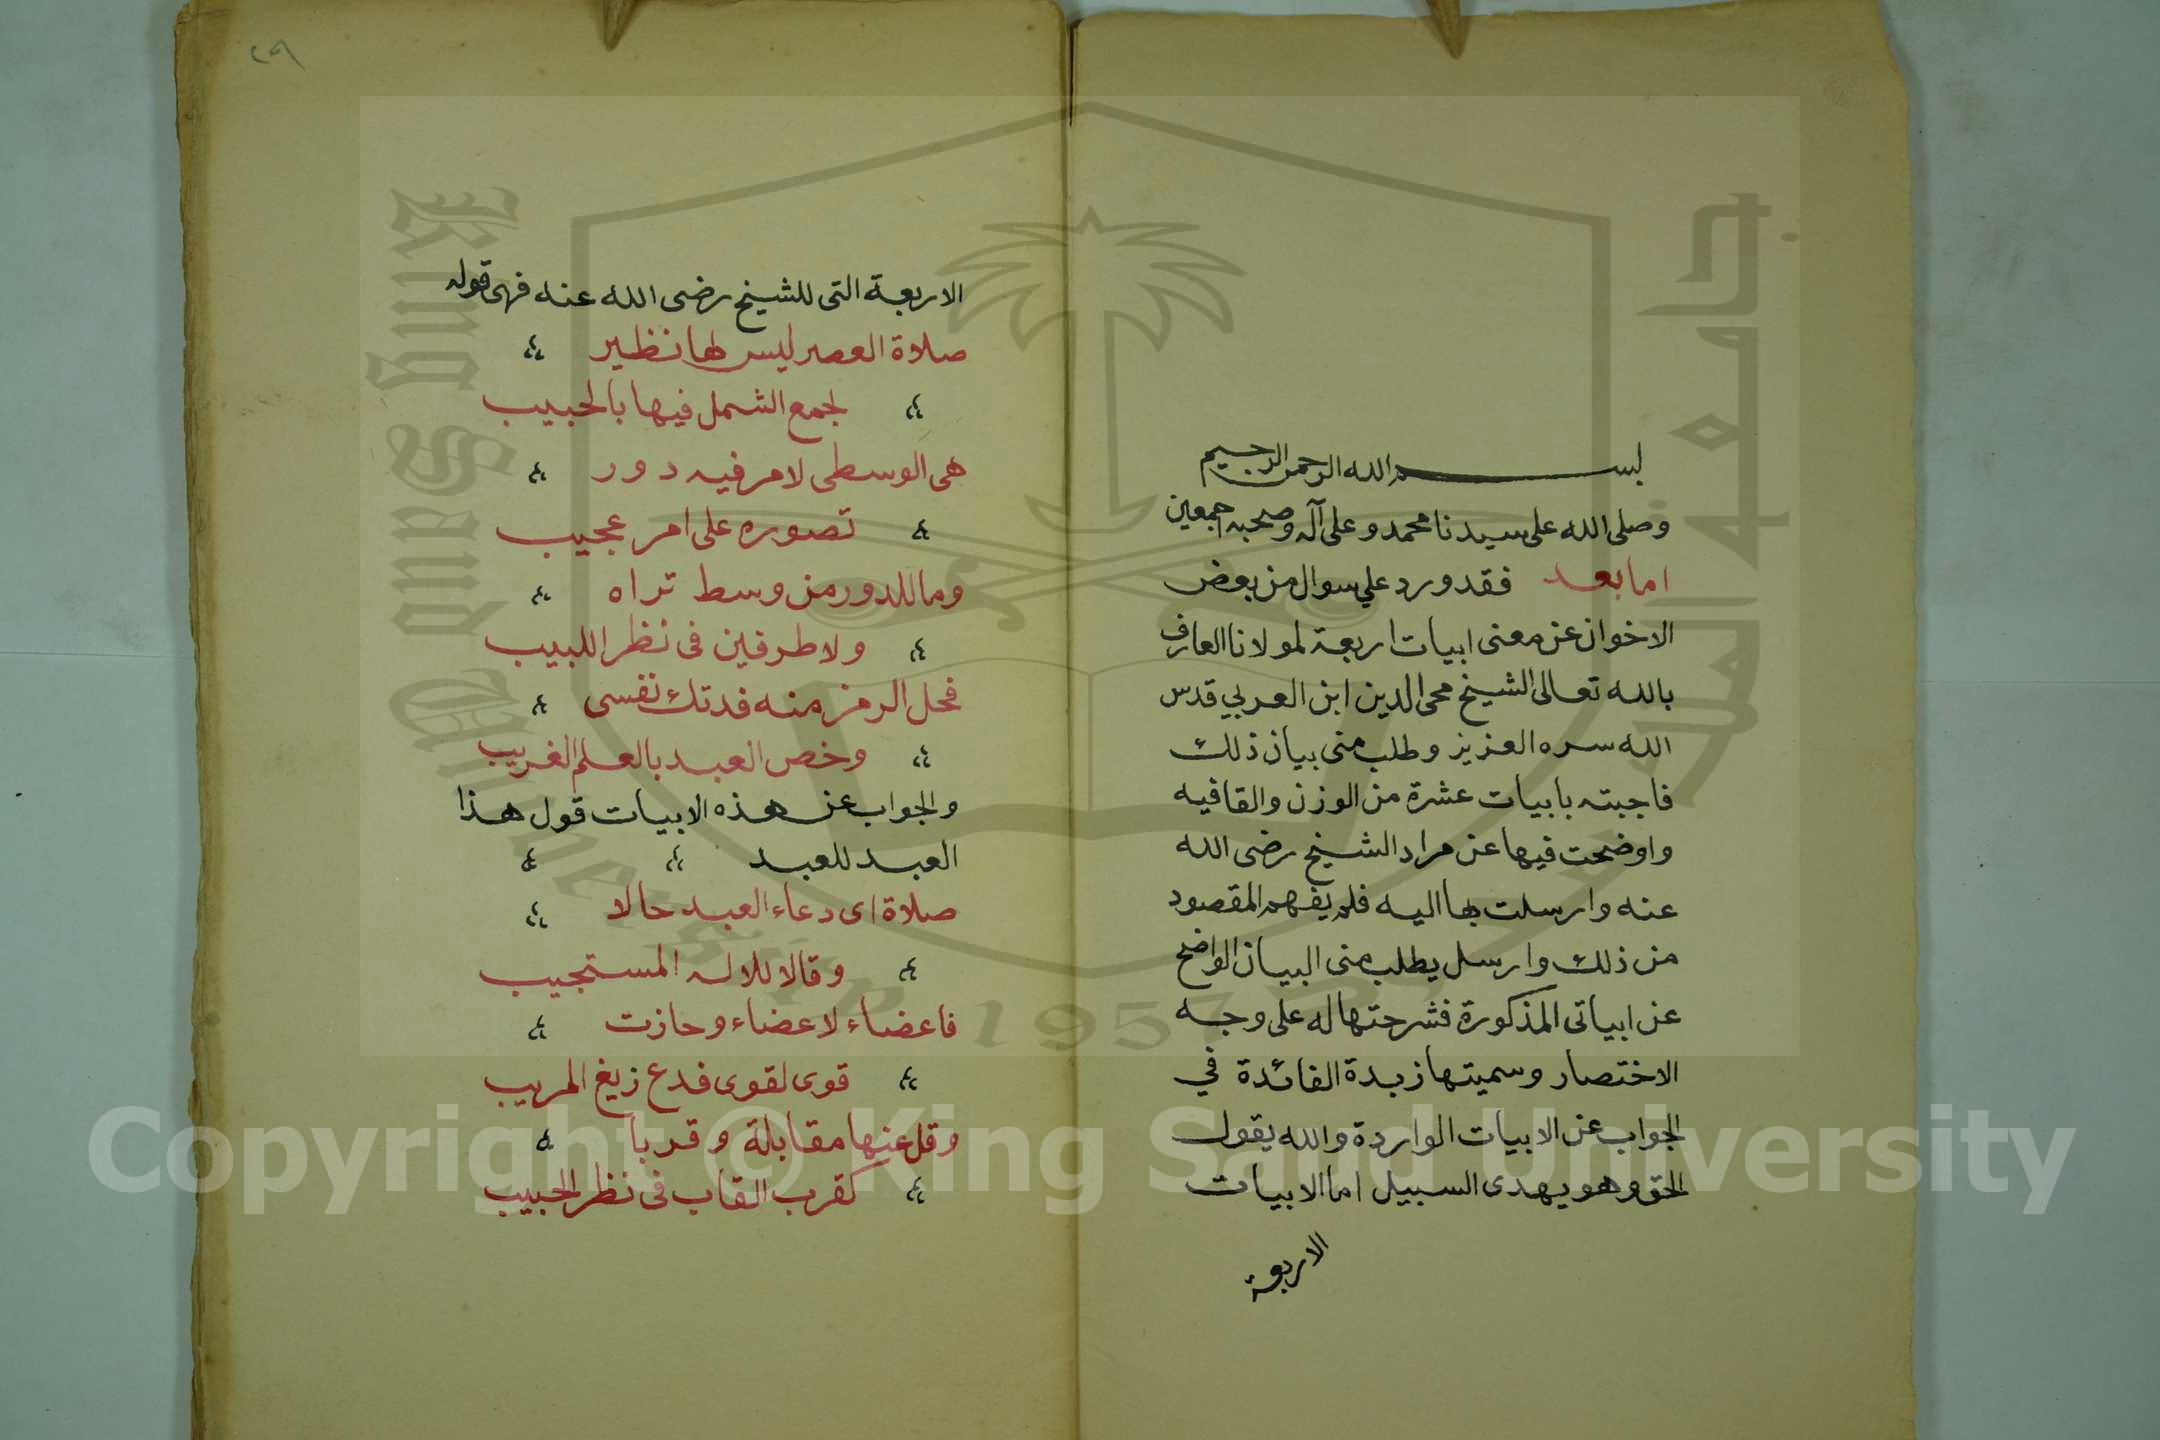 بسم الله الرحمن الرحيم
وصلى الله على سيدنا محمد وعلى آله وصحبه اجمعين
اما بعد فقد ورد علي سوال من بعض
الاخوان عن معنى ابيات اربعة لمولانا العارف
بالله تعالى الشيخ محى الدين ابن العربي قدس
الله سره العزيز وطلب منى بيان ذلك
فاجبته بابيات عشرة من الوزن والقافيه
واوضحت فيها عن مراد الشيخ رضى الله
عنه وارسلت بها اليه فلم يفهم المقصود
من ذلك وارسل يطلب منى البيان الواضح
عن ابياتى المذكورة فشرحتها له على وجه
الاختصار وسميتها زبدة الفائدة في
الجواب عن الابيات الواردة والله يقول
الحق وهو يهدى السبيل اما الابيات
الاربعة
٢٩
الاربعة التى للشيخ رضى الله عنه فهى قوله
صلاة العصر ليس لها نظير
لجمع الشمل فيها بالحبيب
هى الوسطى لامر فيه دور
تصوره على امر عجيب
وما للدور من وسط تراه
ولا طرفين فى نظر اللبيب
فحل الرمز منه فدتك نفسى
وخص العبد بالعلم الغريب
والجواب عن هذه الابيات قول هذا
العبد للعبد
صلاة اى دعاء العبد حالا
وقالا للاله المستجيب
فاعضاء لاعضاء وحازت
قوى لقوى فدع زيغ المريب
وقل عنها مقابلة وقربا
كقرب القاب فى نظر الحبيب
جامعة الملك سعود
King Saud University
1957
Copyright © King Saud University